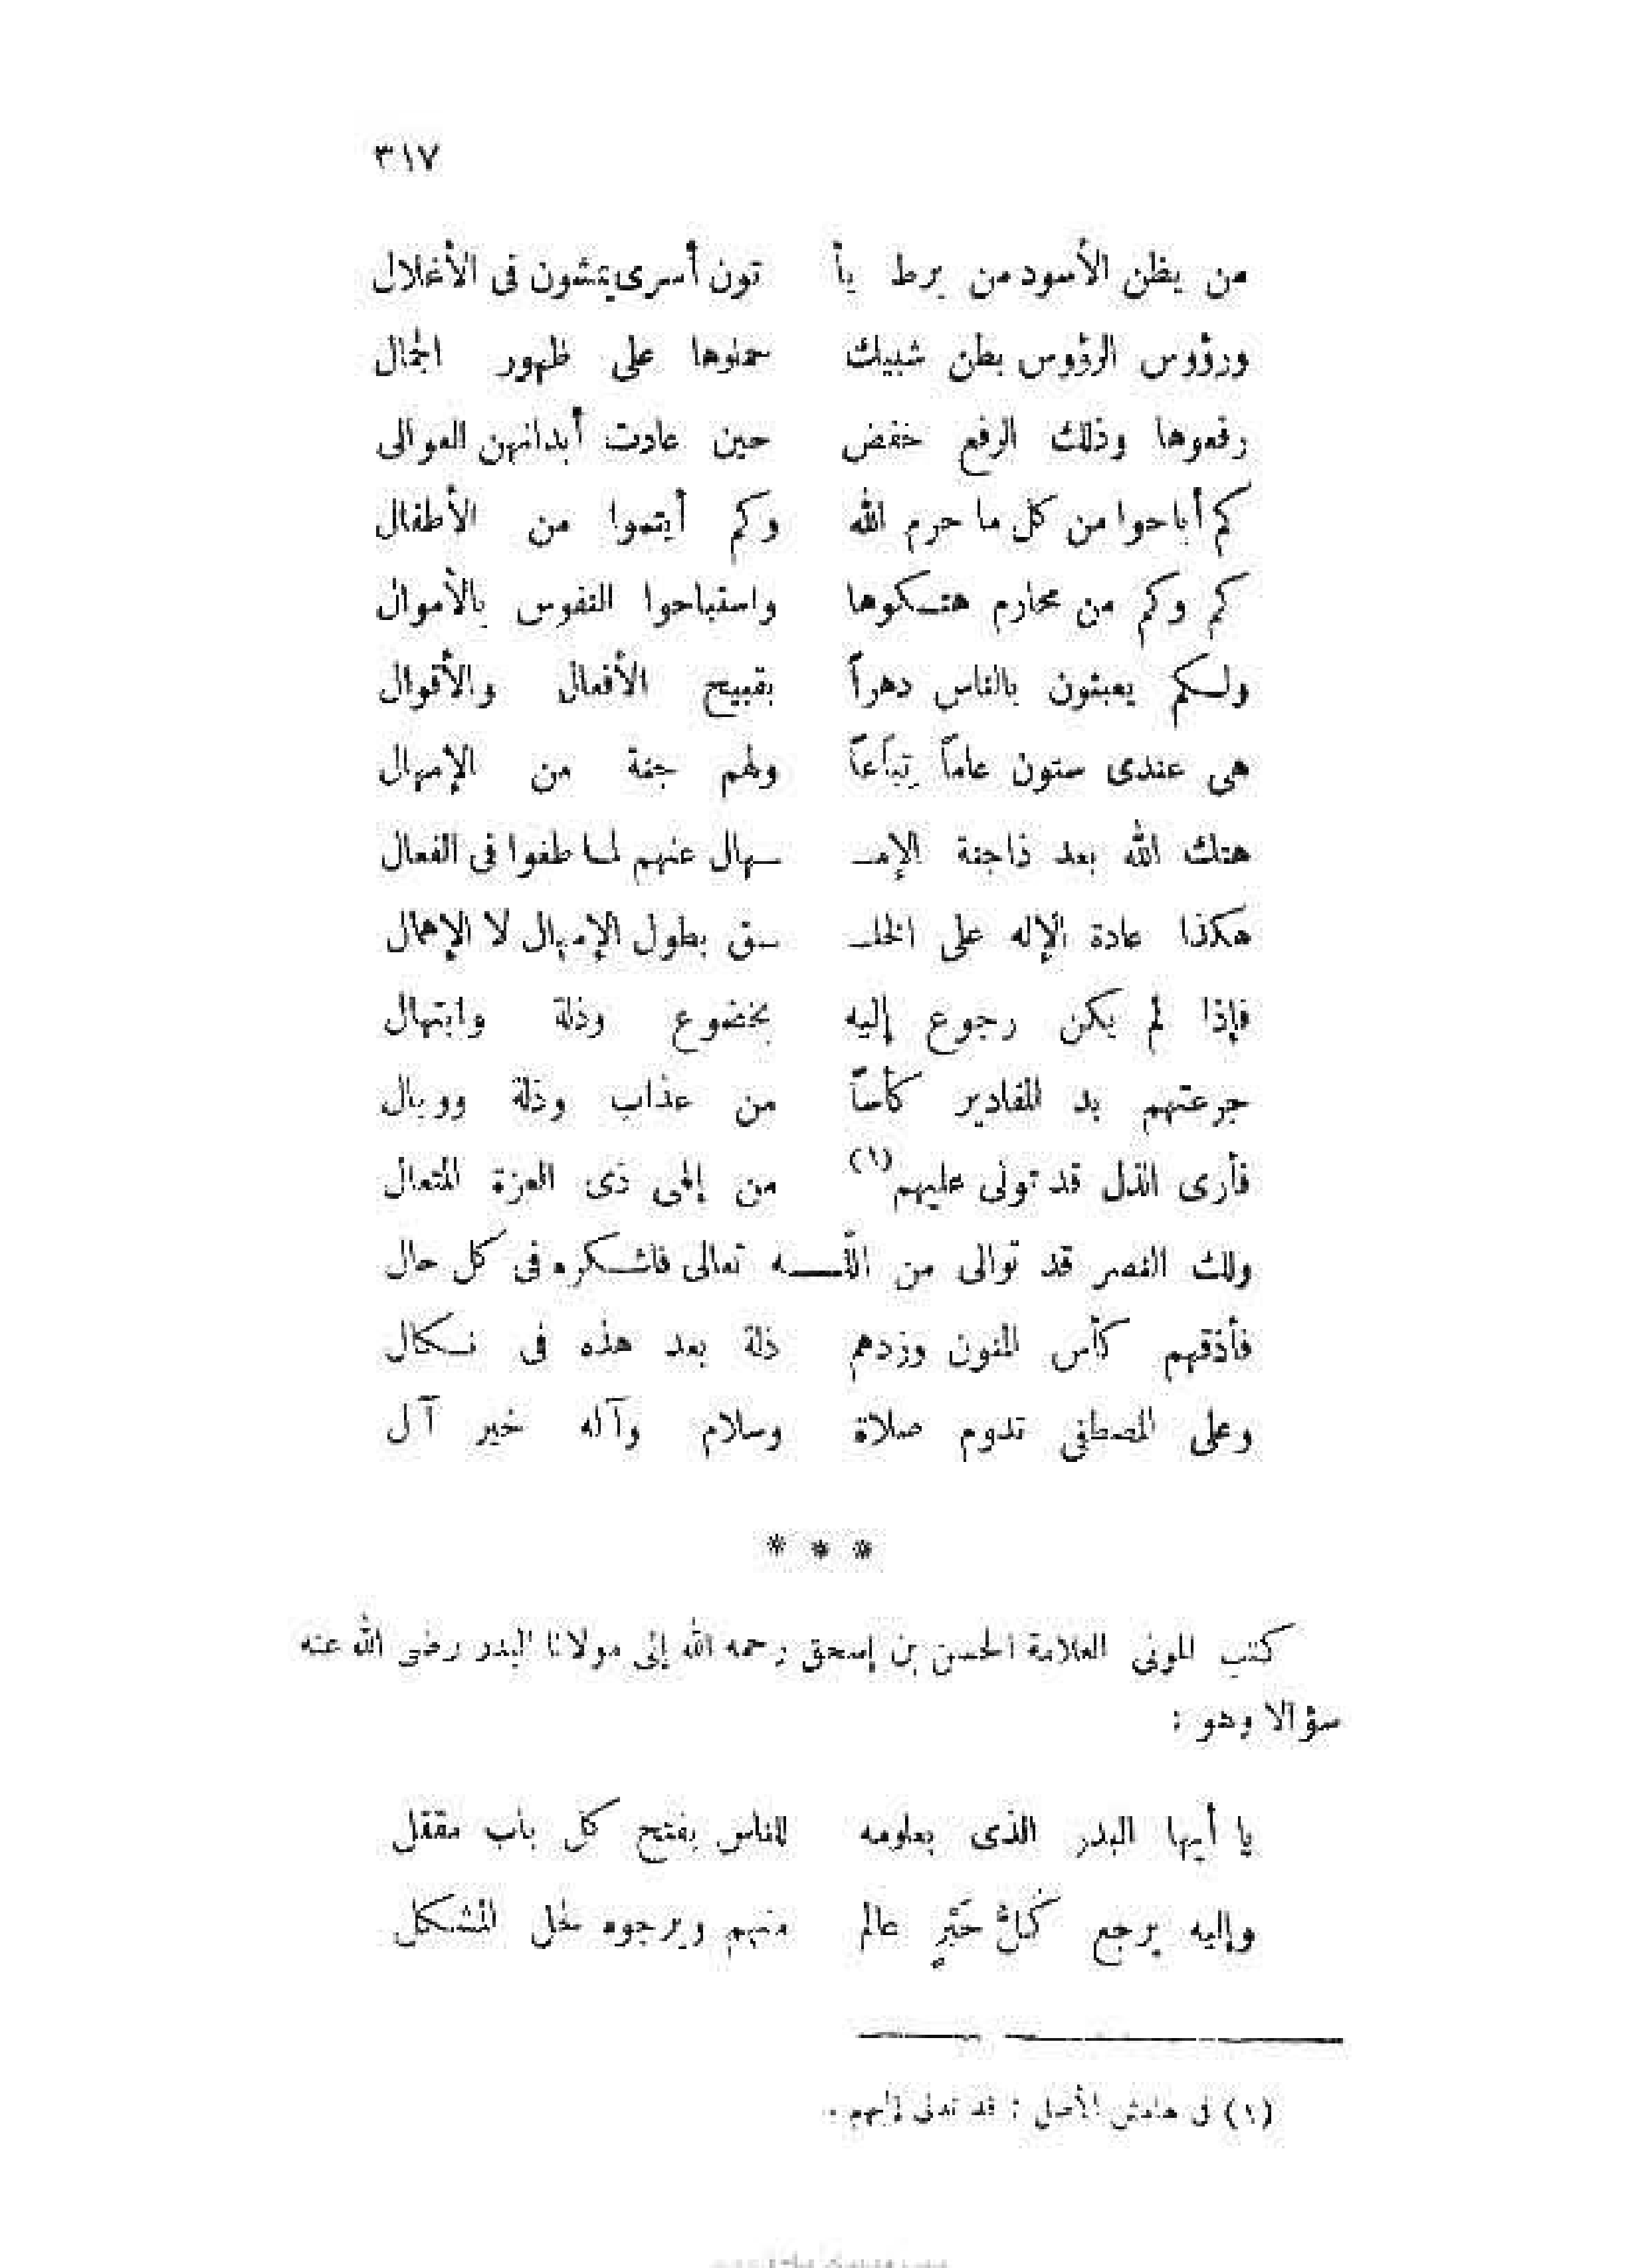 ٣١٧
من يظن الأسود من برط يأ تون أسرى يتشون فى الأغلال
ورؤوس الرؤوس بطن شبيك حملوها على ظهور الجمال
رفعوها وذلك الرفع خفض حين عادت أبدانهن العوالى
كم أباحوا من كل ما حرم الله وكم أيتموا من الأطفال
كم وكم من محارم هتكوها واستباحوا النفوس بالأموال
ولكم يعبثون بالناس دهراً بقبيح الأفعال والأقوال
هى عندى ستون عاماً تِبَاعاً ولهم جنة من الإمهال
هتك الله بعد ذا جنة الإمـ ـهال عنهم لما طغوا فى الفعال
هكذا عادة الإله على الخلـ ـق بطول الإمهال لا الإهمال
فإذا لم يكن رجوع إليه بخضوع وذلة وابتهال
جرعتهم يد المقادير كأساً من عذاب وذلة ووبال
فأرى الذل قد تولى عليهم (١) من إلهى ذى العزة المتعال
ولك النصر قد توالى من اللـــه تعالى فاشكره فى كل حال
فأذقهم كأس المنون وزدهم ذلة بعد هذه فى نكال
وعلى المصطفى تدوم صلاة وسلام وآله خير آل
* * *
كتب المولى العلامة الحسن بن إسحق رحمه الله إلى مولانا البدر رضى الله عنه
سؤالا وهو :
يا أيها البدر الذى بعلومه للناس يفتح كل باب مقفل
وإليه يرجع كُلُّ حَبْرٍ عالم منهم ويرجوه لحل المشكل
(١) فى هامش الأصل : قد تدلى